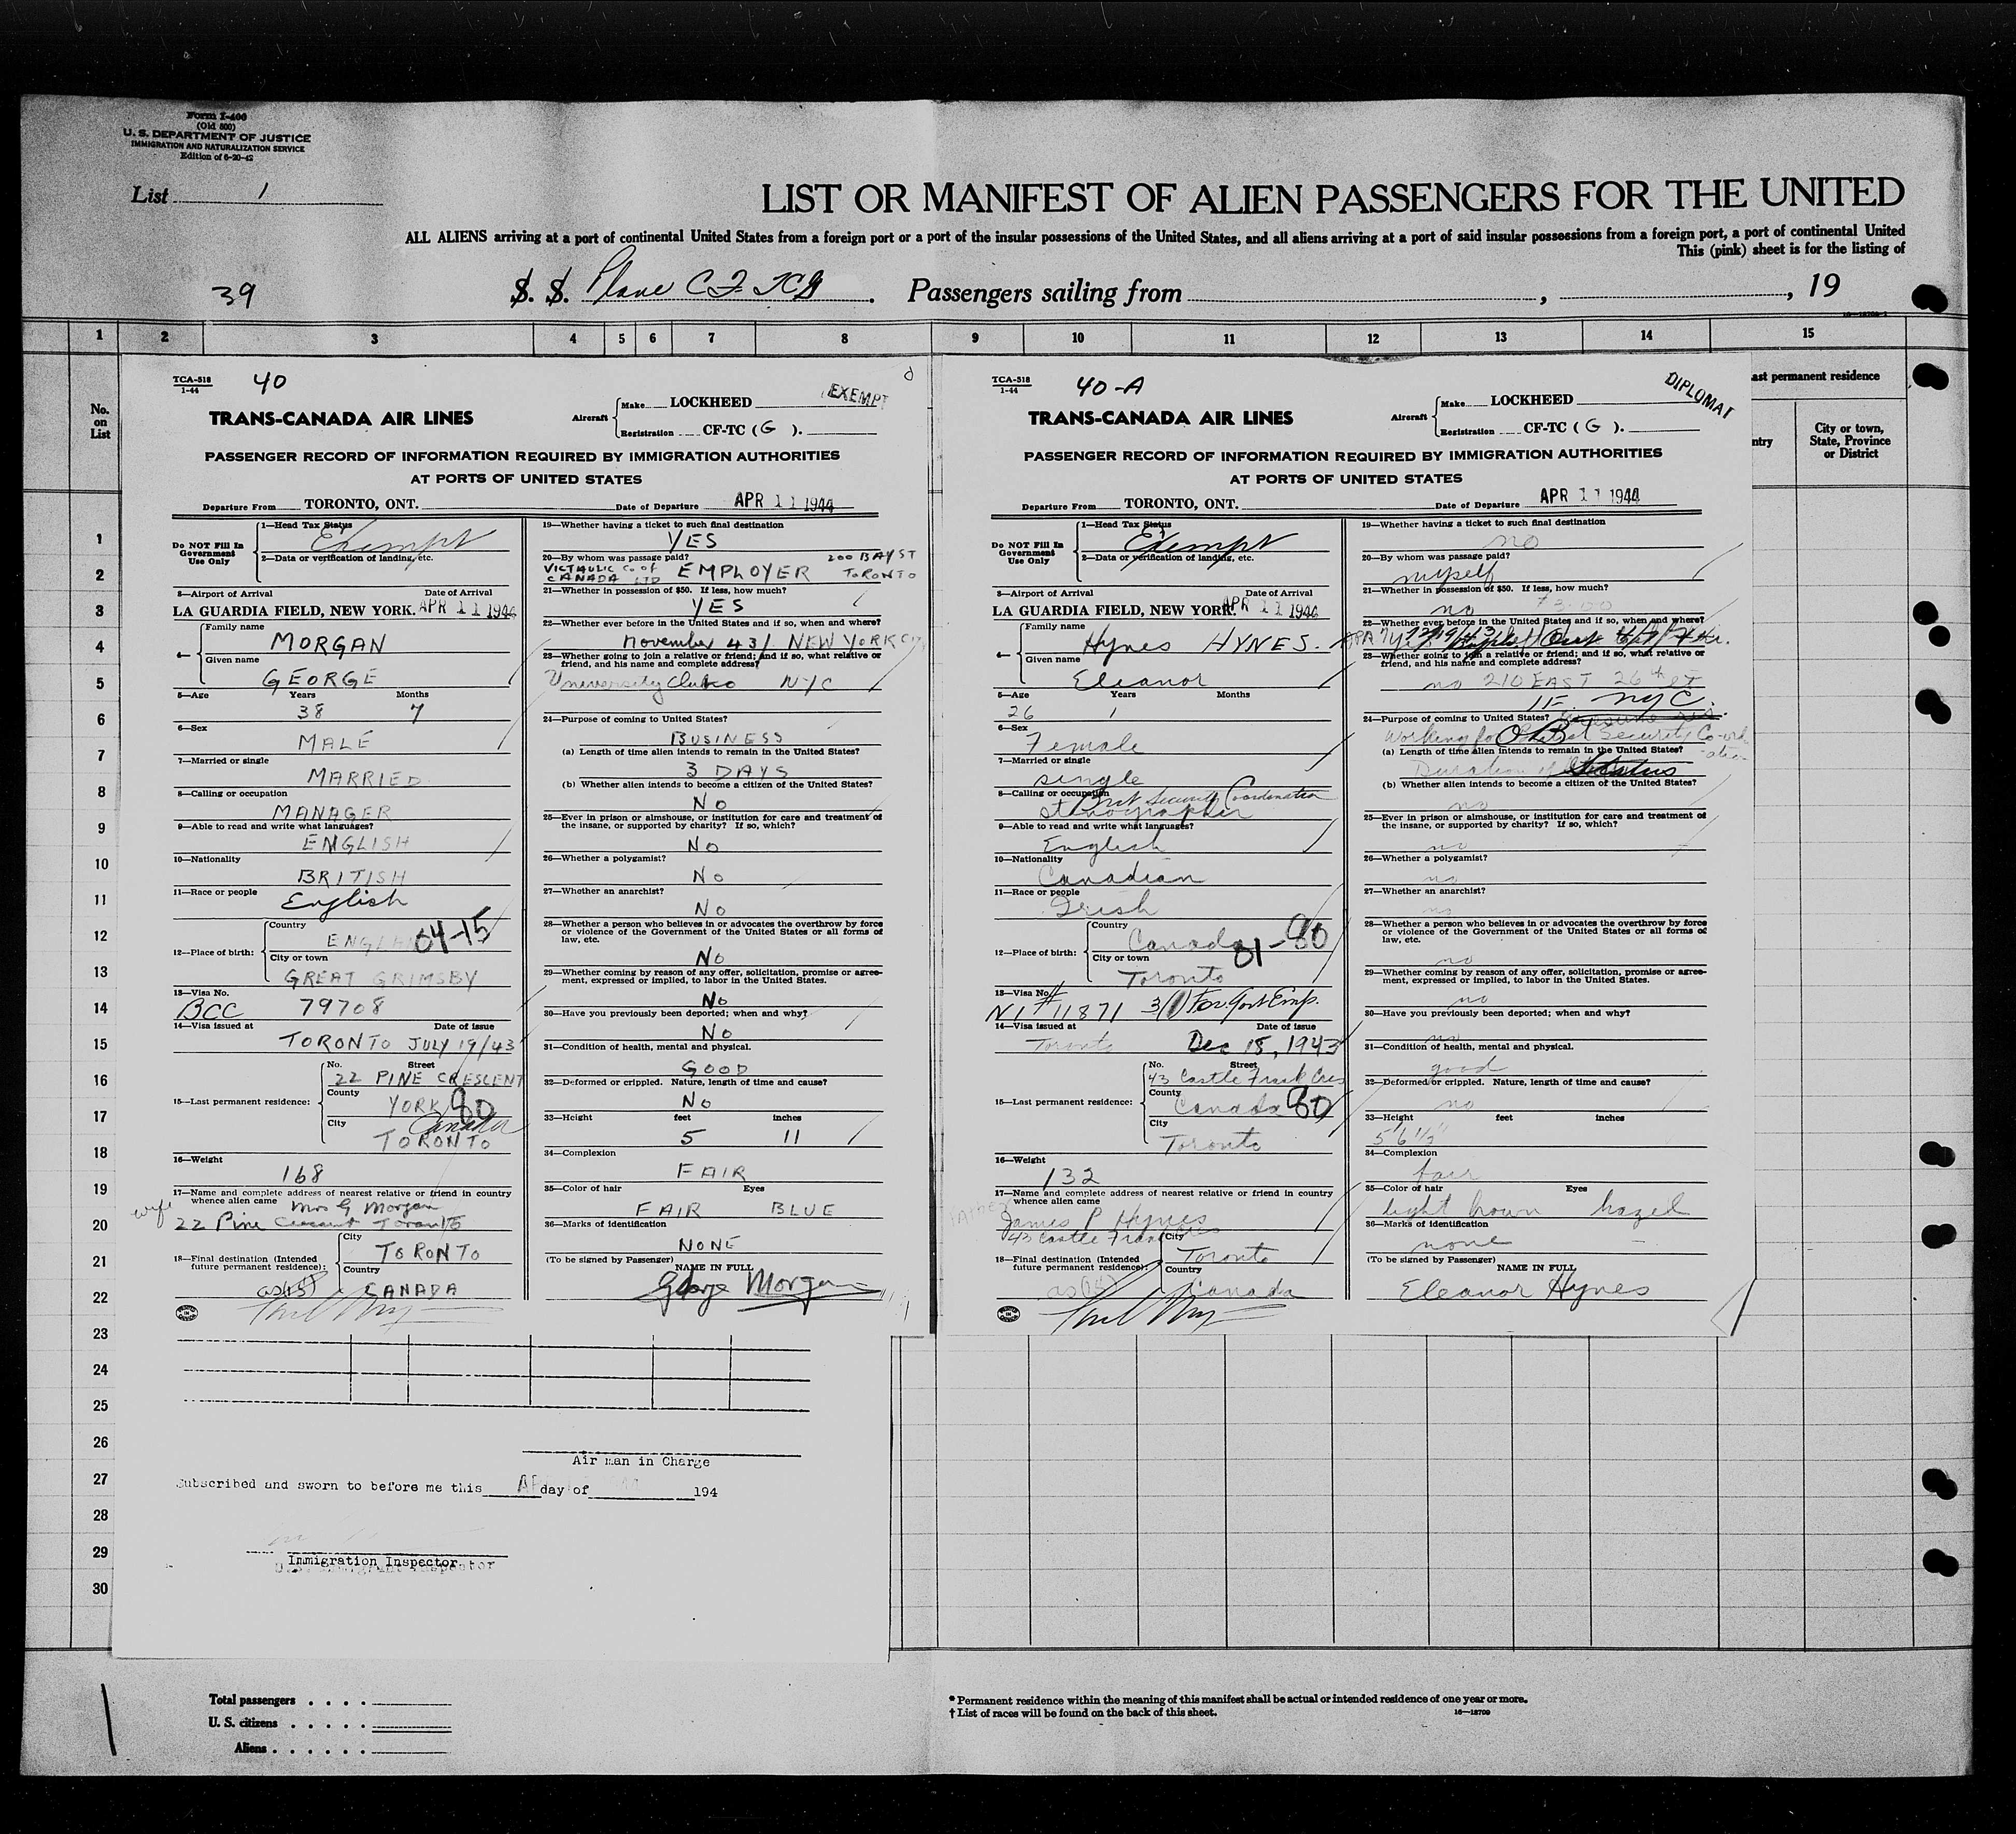 Form I-400
(Old 500)
U. S. DEPARTMENT OF JUSTICE
IMMIGRATION AND NATURALIZATION SERVICE
Edition of 6-20-42
List 1
LIST OR MANIFEST OF ALIEN PASSENGERS FOR THE UNITED
ALL ALIENS arriving at a port of continental United States from a foreign port or a port of the insular possessions of the United States, and all aliens arriving at a port of said insular possessions from a foreign port, a port of continental United
This (pink) sheet is for the listing of
39
S. S. Plane CF TCG. Passengers sailing from , , 19
1 2 3 4 5 6 7 8 9 10 11 12 13 14 15
No. on List
ast permanent residence
ntry
City or town, State, Province or District
TCA-518
1-44
40
EXEMPT
TRANS-CANADA AIR LINES
Aircraft Make LOCKHEED
Registration CF-TC (G).
PASSENGER RECORD OF INFORMATION REQUIRED BY IMMIGRATION AUTHORITIES
AT PORTS OF UNITED STATES
Departure From TORONTO, ONT. Date of Departure APR 11 1944
Do NOT Fill In Government Use Only
1—Head Tax Status Exempt
2—Data or verification of landing, etc.
3—Airport of Arrival Date of Arrival
LA GUARDIA FIELD, NEW YORK. APR 11 1944
4— Family name MORGAN
Given name GEORGE
5—Age Years Months
38 7
6—Sex
MALE
7—Married or single
MARRIED
8—Calling or occupation
MANAGER
9—Able to read and write what languages?
ENGLISH
10—Nationality
BRITISH
11—Race or people
English
12—Place of birth: Country ENGLAND 04-15
City or town
GREAT GRIMSBY
13—Visa No.
BCC 79708
14—Visa issued at Date of issue
TORONTO JULY 19/43
15—Last permanent residence: No. Street
22 PINE CRESCENT
County YORK 80
Canada
City TORONTO
16—Weight
168
17—Name and complete address of nearest relative or friend in country whence alien came
wife Mrs G Morgan
22 Pine Crescent Toronto
18—Final destination (Intended future permanent residence): City TORONTO
Country
as (15) CANADA
19—Whether having a ticket to such final destination
YES
20—By whom was passage paid? 200 BAY ST
VICTAULIC Co of CANADA LTD EMPLOYER TORONTO
21—Whether in possession of $50. If less, how much?
YES
22—Whether ever before in the United States and if so, when and where?
November 43/ NEW YORK
23—Whether going to join a relative or friend; and if so, what relative or
friend, and his name and complete address?
University Club NYC
24—Purpose of coming to United States?
BUSINESS
(a) Length of time alien intends to remain in the United States?
3 DAYS
(b) Whether alien intends to become a citizen of the United States?
NO
25—Ever in prison or almshouse, or institution for care and treatment of
the insane, or supported by charity? If so, which?
NO
26—Whether a polygamist?
NO
27—Whether an anarchist?
NO
28—Whether a person who believes in or advocates the overthrow by force
or violence of the Government of the United States or all forms of
law, etc.
NO
29—Whether coming by reason of any offer, solicitation, promise or agree-
ment, expressed or implied, to labor in the United States.
NO
30—Have you previously been deported; when and why?
NO
31—Condition of health, mental and physical.
GOOD
32—Deformed or crippled. Nature, length of time and cause?
NO
33—Height feet inches
5 11
34—Complexion
FAIR
35—Color of hair Eyes
FAIR BLUE
36—Marks of identification
NONE
(To be signed by Passenger) NAME IN FULL
George Morgan
TCA-518
1-44
40-A
DIPLOMAT
TRANS-CANADA AIR LINES
Aircraft Make LOCKHEED
Registration CF-TC (G).
PASSENGER RECORD OF INFORMATION REQUIRED BY IMMIGRATION AUTHORITIES
AT PORTS OF UNITED STATES
Departure From TORONTO, ONT. Date of Departure APR 11 1944
Do NOT Fill In Government Use Only
1—Head Tax Status
Exempt
2—Data or verification of landing, etc.
3—Airport of Arrival Date of Arrival
LA GUARDIA FIELD, NEW YORK. APR 11 1944
4— Family name Hynes HYNES.
Given name Eleanor
5—Age Years Months
26 1
6—Sex
Female
7—Married or single
single
8—Calling or occupation Brit Security Coordination
stenographer
9—Able to read and write what languages?
English
10—Nationality
Canadian
11—Race or people
Irish
12—Place of birth: Country Canada 01-80
City or town
Toronto
13—Visa No.
NI #11871 3(1) For Govt Emp.
14—Visa issued at Date of issue
Toronto Dec 18, 1943
15—Last permanent residence: No. Street
43 Castle Frank Cres
County Canada 80
City
Toronto
16—Weight
132
17—Name and complete address of nearest relative or friend in country whence alien came
Father James P Hynes
43 Castle Frank Cres
18—Final destination (Intended future permanent residence): City Toronto
Country
as (15) Canada
19—Whether having a ticket to such final destination
no
20—By whom was passage paid?
myself
21—Whether in possession of $50. If less, how much?
no
22—Whether ever before in the United States and if so, when and where?
23—Whether going to join a relative or friend; and if so, what relative or
friend, and his name and complete address?
no 210 EAST 26th ST
1F. NYC.
24—Purpose of coming to United States?
Working for British Security Co-ordination
(a) Length of time alien intends to remain in the United States?
Duration of Status
(b) Whether alien intends to become a citizen of the United States?
no
25—Ever in prison or almshouse, or institution for care and treatment of
the insane, or supported by charity? If so, which?
no
26—Whether a polygamist?
no
27—Whether an anarchist?
no
28—Whether a person who believes in or advocates the overthrow by force
or violence of the Government of the United States or all forms of
law, etc.
no
29—Whether coming by reason of any offer, solicitation, promise or agree-
ment, expressed or implied, to labor in the United States.
no
30—Have you previously been deported; when and why?
no
31—Condition of health, mental and physical.
good
32—Deformed or crippled. Nature, length of time and cause?
no
33—Height feet inches
5 6 1/2
34—Complexion
fair
35—Color of hair Eyes
light brown hazel
36—Marks of identification
none
(To be signed by Passenger) NAME IN FULL
Eleanor Hynes
1
2
3
4
5
6
7
8
9
10
11
12
13
14
15
16
17
18
19
20
21
22
23
24
25
26
27
28
29
30
Air man in Charge
Subscribed and sworn to before me this day of 194
Immigration Inspector
Total passengers . . . .
U. S. citizens . . . . .
Aliens . . . . . .
* Permanent residence within the meaning of this manifest shall be actual or intended residence of one year or more.
† List of races will be found on the back of this sheet.
16—18709